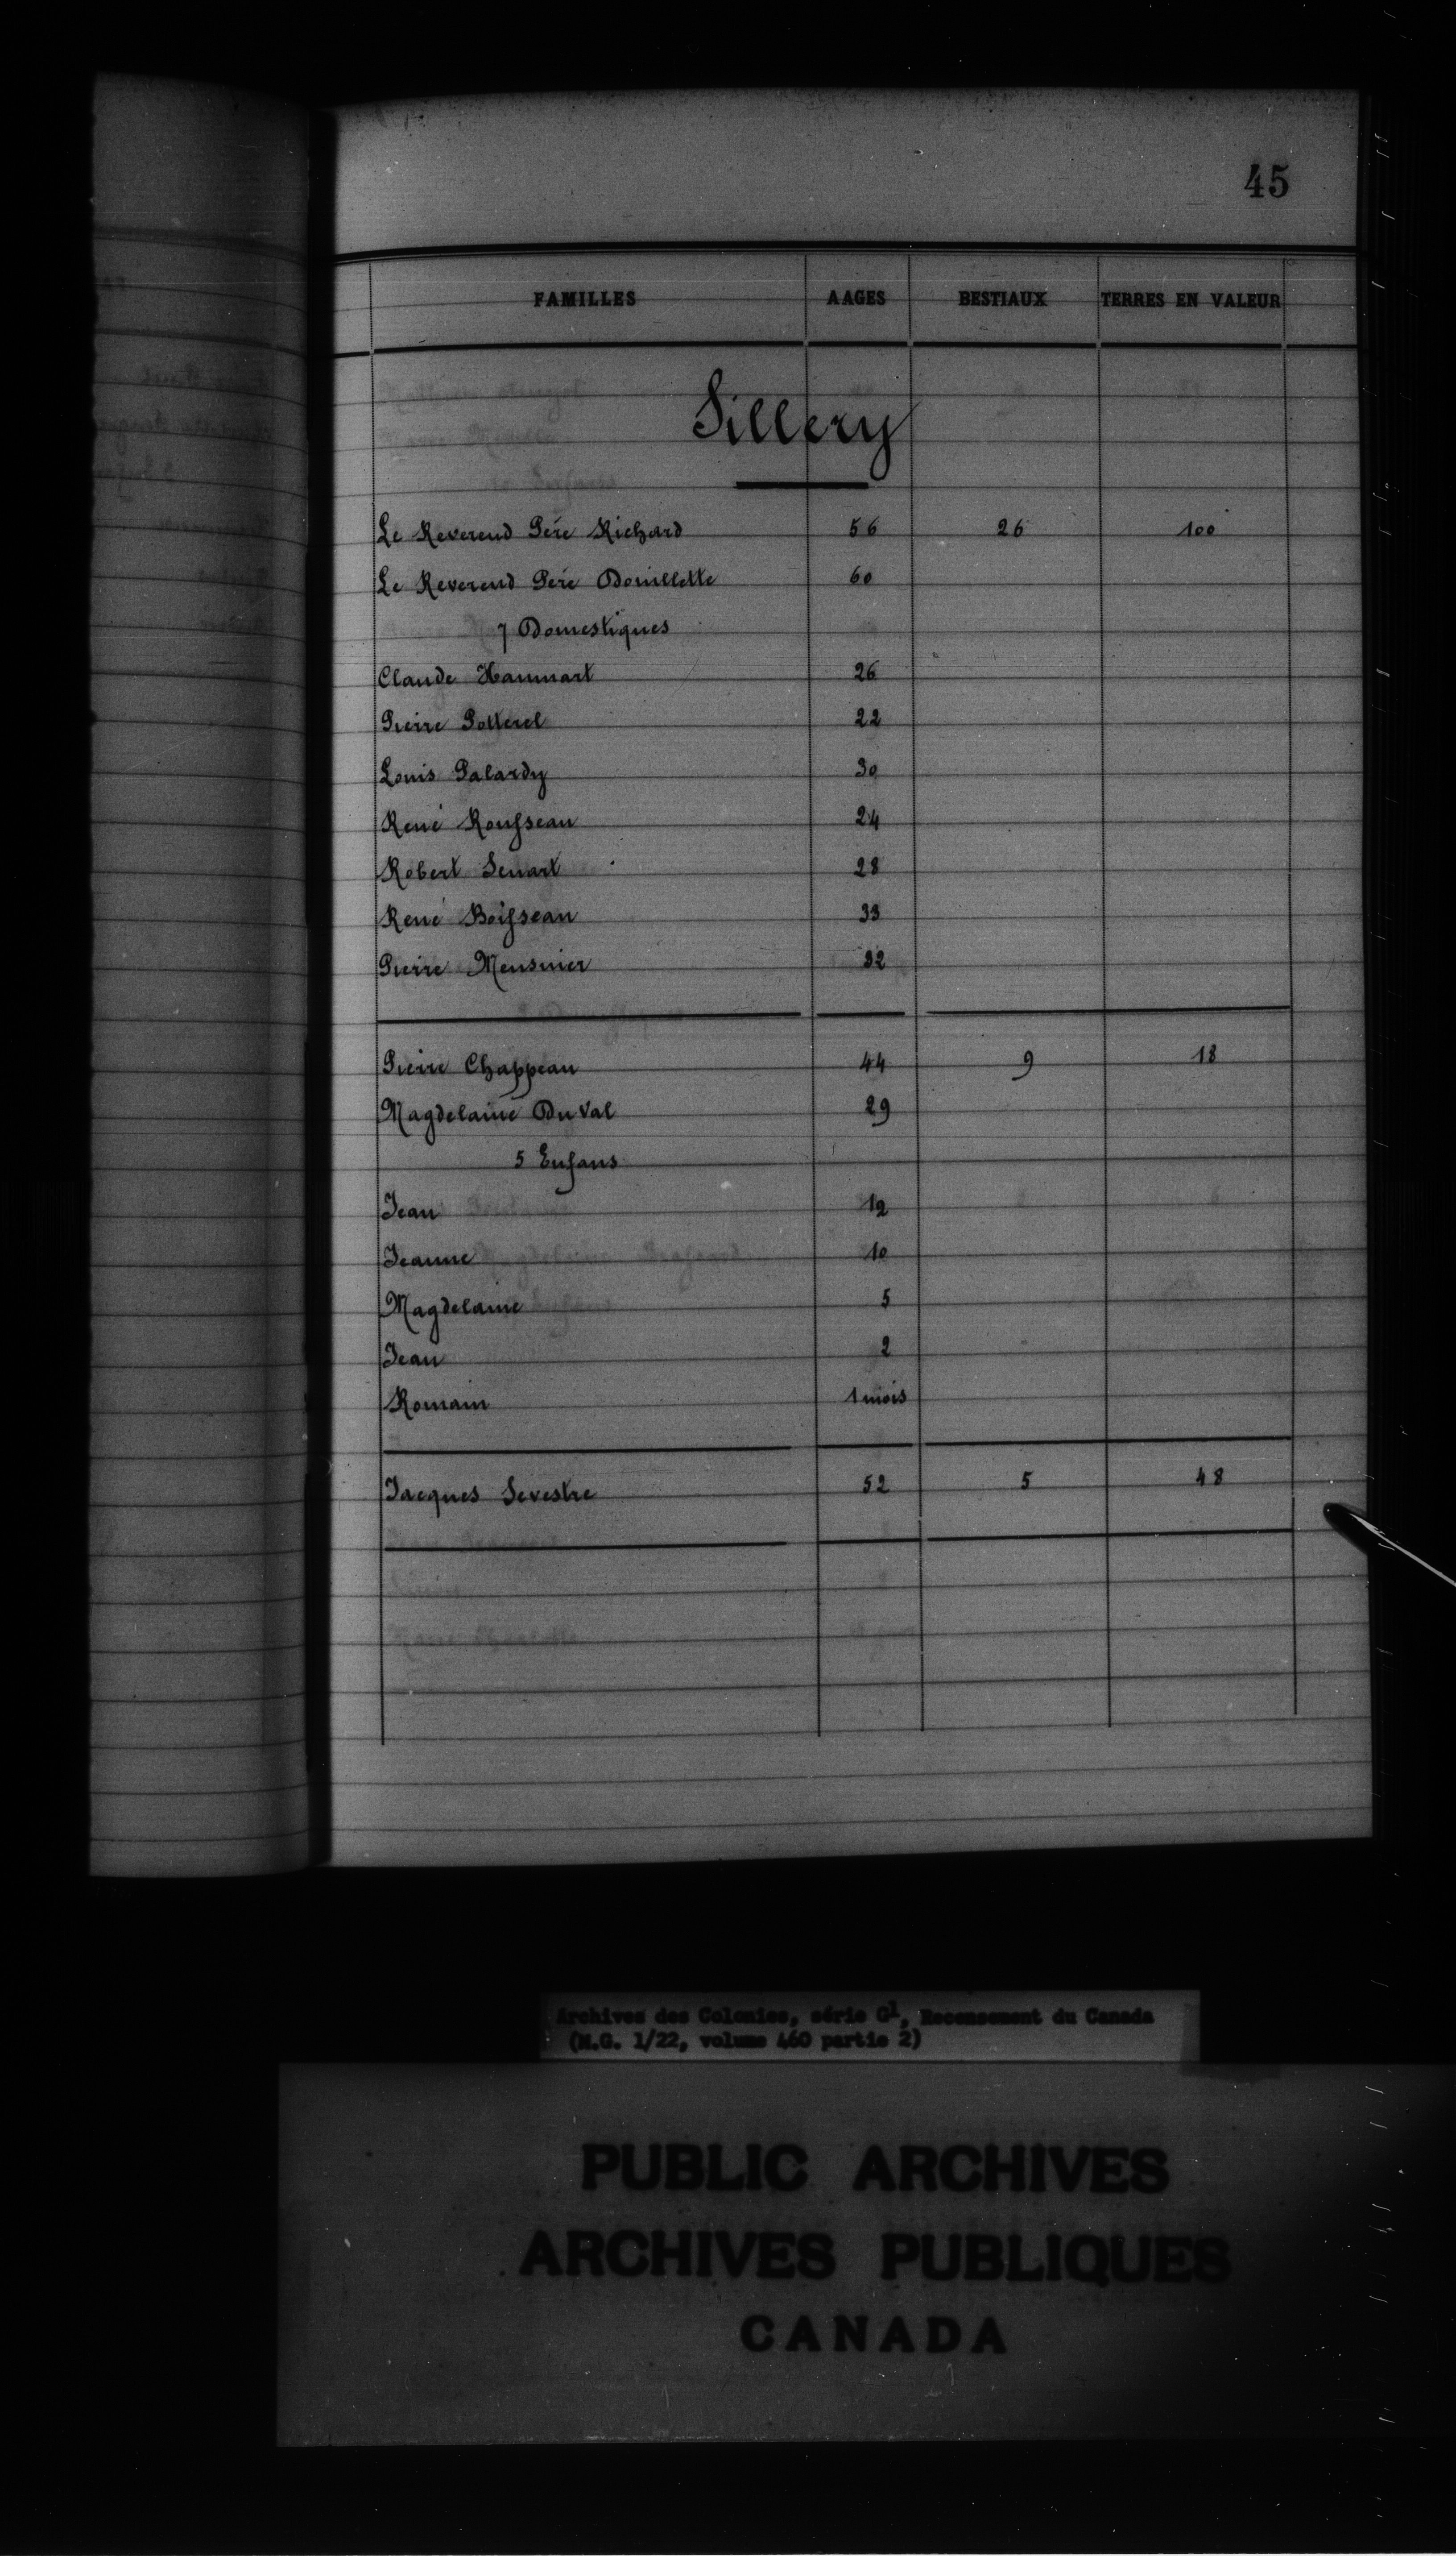 45
FAMILLES AAGES BESTIAUX TERRES EN VALEUR
Sillery
Le Reverend Père Richard 56 26 100
Le Reverend Père Douillette 60
7 Domestiques
Claude Hanmart 26
Pierre Potterel 22
Louis Palardy 30
René Rousseau 24
Robert Senart 28
René Boisseau 33
Pierre Meusnier 32
Pierre Chappeau 44 9 18
Magdelaine Du Val 29
5 Enfans
Jean 12
Jeanne 10
Magdelaine 5
Jean 2
Romain 1 mois
Jacques Sevestre 52 5 48
Archives des Colonies, série G1, Recensement du Canada
(M.G. 1/22, volume 460 partie 2)
PUBLIC ARCHIVES
ARCHIVES PUBLIQUES
CANADA